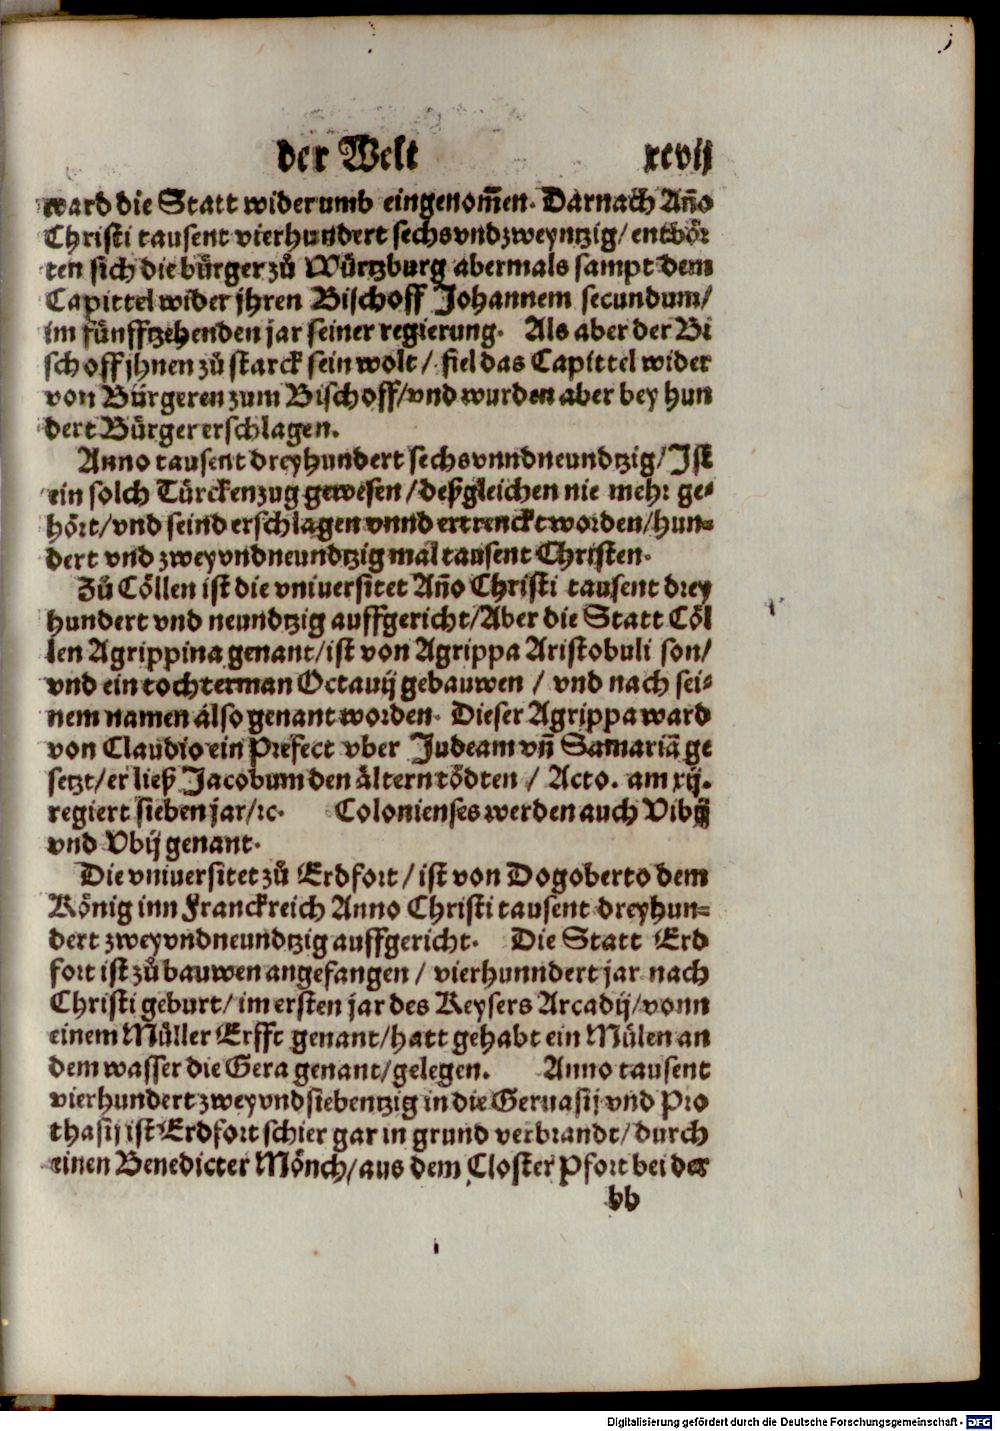 der Welt xcvij
ward die Statt widerumb eingenom̄en. Darnach An̄o
Christi tausent vierhundert sechsvndzweyntzig/ entbör
ten sich die bürger zů Würtzburg abermals sampt dem
Capittel wider jhren Bischoff Johannem secundum/
im fünfftzehenden jar seiner regierung. Als aber der Bi
schoff jhnen zů starck sein wolt/ fiel das Capittel wider
von Bürgeren zum Bischoff/ vnd wurden aber bey hun
dert Bürger erschlagen.
Anno tausent dreyhundert sechsvnndneundtzig/ Ist
ein solch Türckenzug gewesen/ deßgleichen nie mehr ge-
hört/ vnd seind erschlagen vnnd ertrenckt worden/ hun-
dert vnd zweyvndneundtzig mal tausent Christen.
Zů Cöllen ist die vniuersitet An̄o Christi tausent drey
hundert vnd neundtzig auffgericht/ Aber die Statt Cöl
len Agrippina genant/ ist von Agrippa Aristobuli son/
vnd ein tochterman Octauij gebauwen / vnd nach sei-
nem namen also genant worden. Dieser Agrippa ward
von Claudio ein Prefect vber Judeam vn̄ Samariā ge
setzt/ er ließ Jacobum den ältern tödten / Acto. am xij.
regiert sieben jar/ ꝛc. Colonienses werden auch Vibij
vnd Vbij genant.
Die vniuersitet zů Erdfort/ ist von Dogoberto dem
König inn Franckreich Anno Christi tausent dreyhun-
dert zweyvndneundtzig auffgericht. Die Statt Erd
fort ist zů bauwen angefangen / vierhunndert jar nach
Christi geburt/ im ersten jar des Keysers Arcadij/ vonn
einem Müller Erfft genant/ hatt gehabt ein Mülen an
dem wasser die Gera genant/ gelegen. Anno tausent
vierhundert zweyvndsiebentzig in die Geruasij vnd Pro
thasij ist Erdfort schier gar in grund verbrandt/ durch
einen Benedicter Mönch/ aus dem Closter Pfort bei der
bb
Digitalisierung gefördert durch die Deutsche Forschungsgemeinschaft - DFG